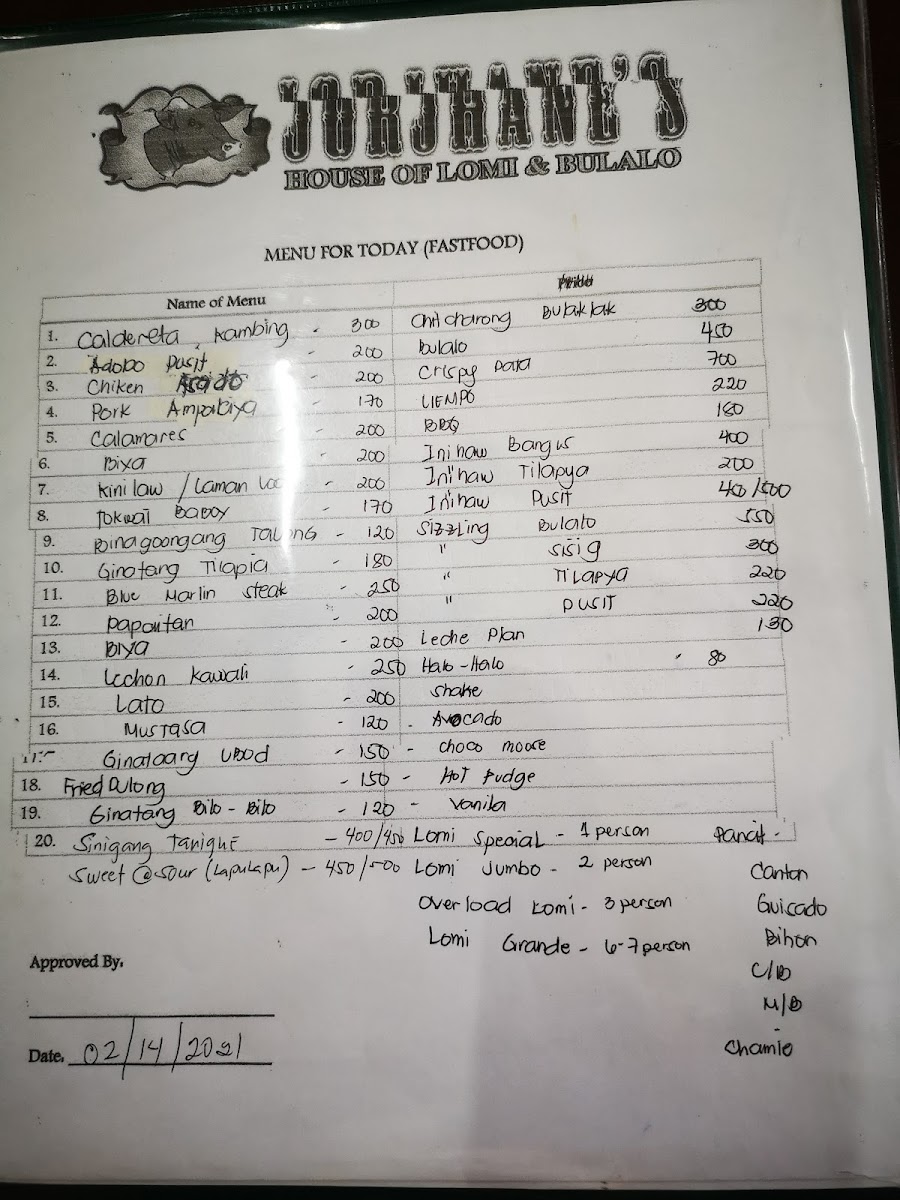 JORJHANE'S
HOUSE OF LOMI & BULALO
MENU FOR TODAY (FASTFOOD)
Name of Menu
1. Caldereta Kambing - 300 Chitcharong Bulaklak 300
2. Adobo Pusit - 200 Bulalo 450
3. Chiken Asado - 200 Crispy Pata 700
4. Pork Ampalaya 170 LIEMPO 220
5. Calamares - 200 BBQ 180
6. Biya 200 Ininaw Bangus 400
7. Kinilaw / Laman - 200 Ininaw Tilapya 200
8. Tokwat Baboy - 170 Ininaw Pusit 450/500
9. Binagoongang Talong - 120 Sizzling Bulalo 550
10. Ginatang Tilapia - 180 " Sisig 300
11. Blue Marlin steak - 250 " TiLapya 220
12. Papaitan - 200 " Pusit 220
13. Biya - 200 Leche Plan 130
14. Lechon Kawali - 250 Halo-Halo - 80
15. Lato - 200 Shake
16. Mustasa - 120 - Avocado
17. Ginataang Ubod - 150 - choco moose
18. Fried Dulong - 150 - Hot Fudge
19. Ginatang Bilo-Bilo - 120 - Vanila
20. Sinigang Tanigue - 400/450 Lomi Special - 1 person Pancit -
Sweet @ Sour (LapuLapu) - 450/500 Lomi Jumbo - 2 person Canton
Overload Lomi - 3 person Guisado
Lomi Grande - 6-7 person Bihon
C/B
M/B
Chamie
Approved By.
Date. 02/14/2021